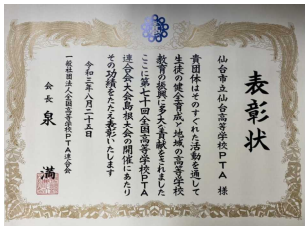 表彰状
仙台市立仙台高等学校PTA 様
貴団体はそのすぐれた活動を通して
生徒の健全育成と地域の高等学校
教育の振興に多大な貢献をされました
ここに第七十回全国高等学校PTA
連合会大会島根大会の開催にあたり
その功績をたたえ表彰いたします
令和三年八月二十五日
一般社団法人全国高等学校PTA連合会
会長 泉 満